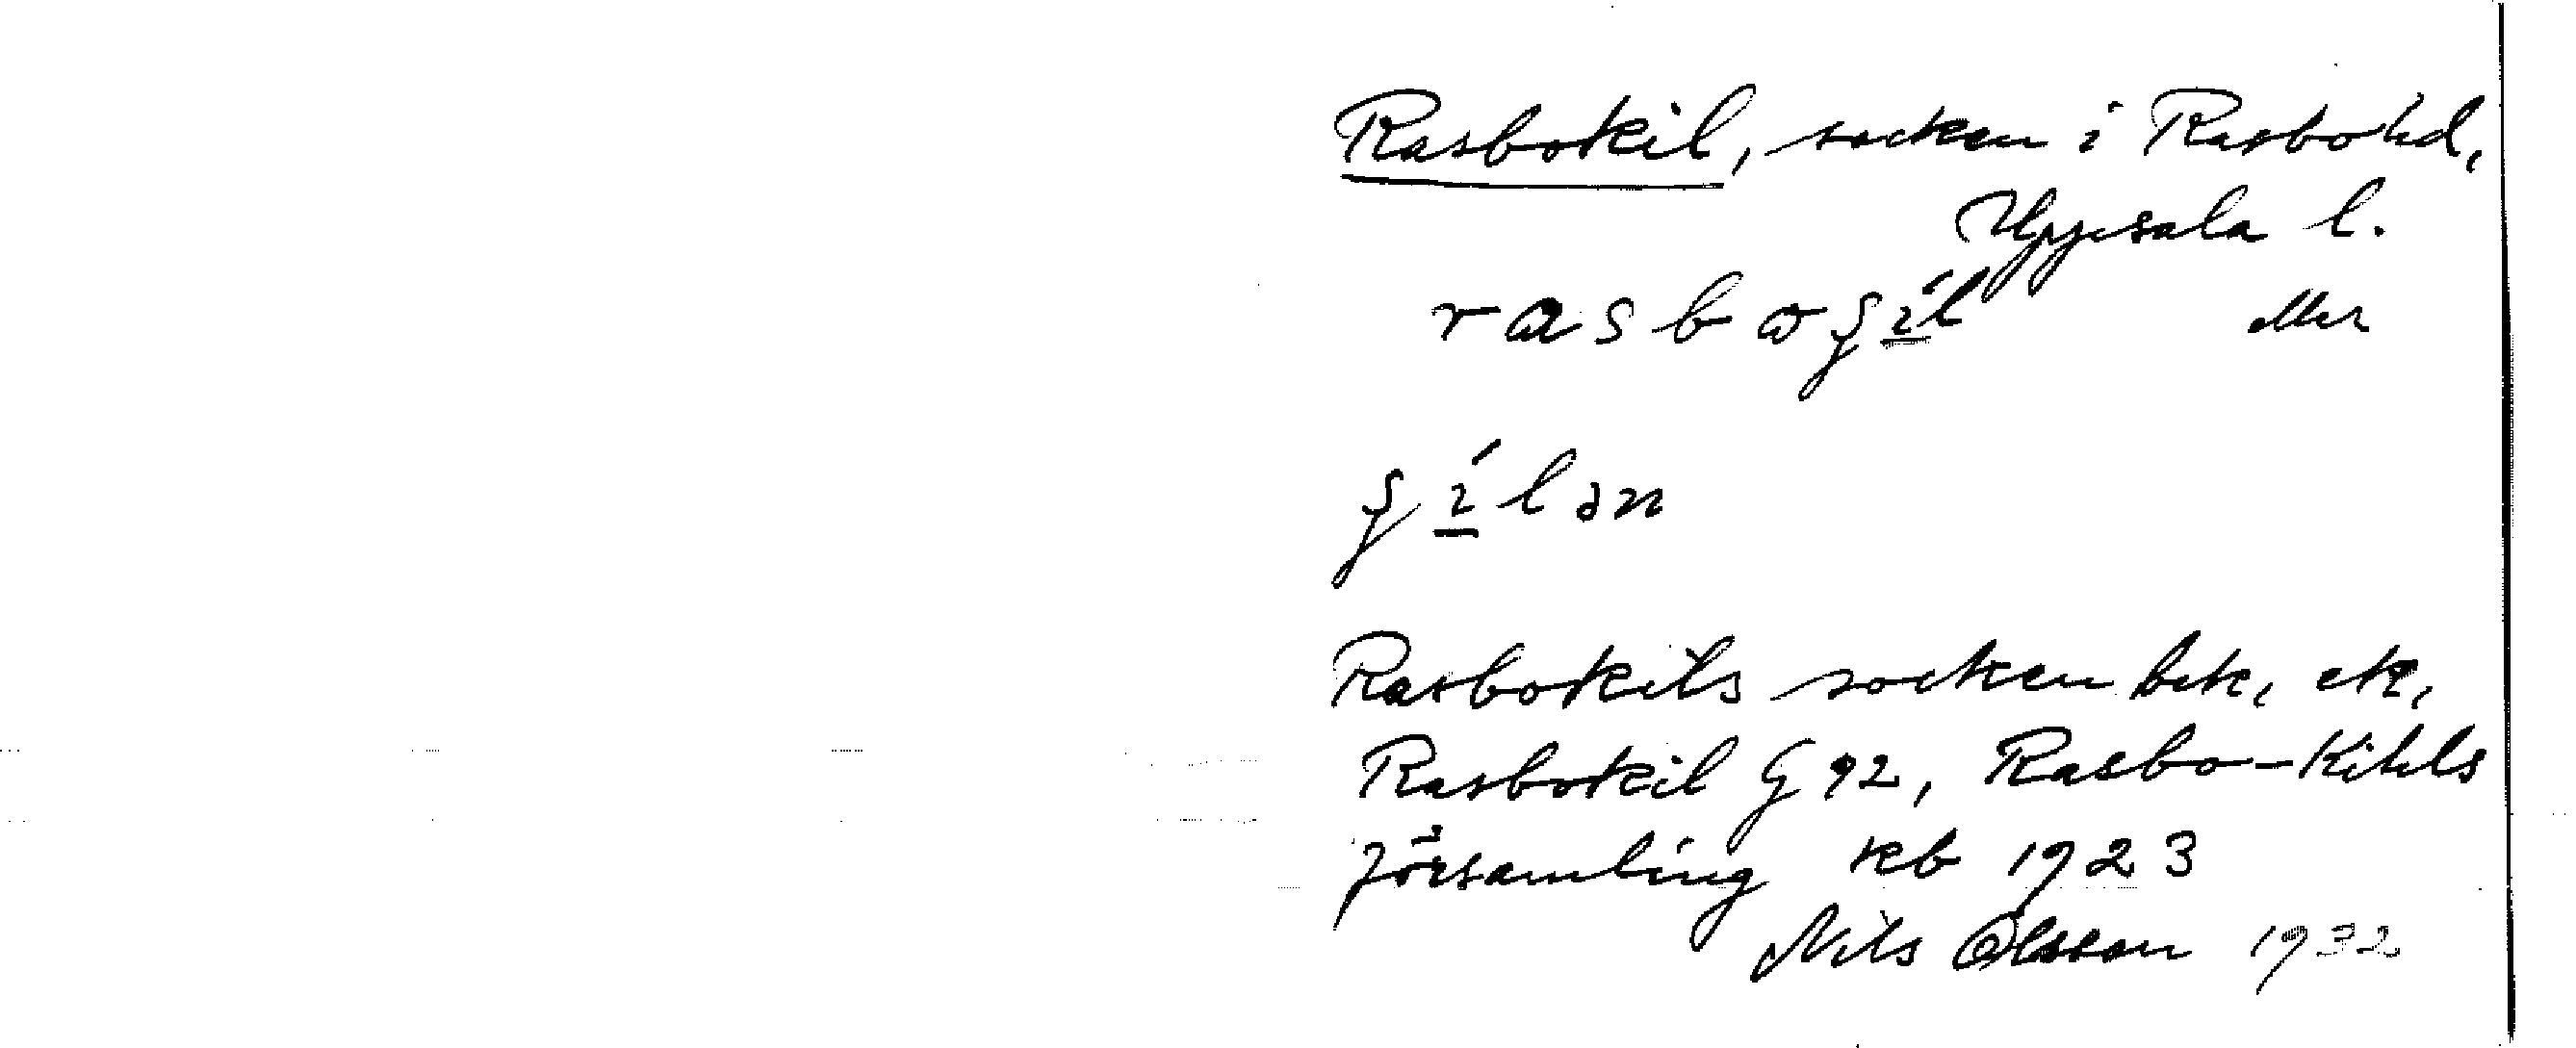 Rasbokil, socken i Rasbo hd,
Uppsala l.
rasbωʂí̲l eller
ʂí̲lən
Rasbokils socken bek, ek,
Rasbokil G 92, Rasbo-Kihls
församling kb 1923
Nils Olsson 1932